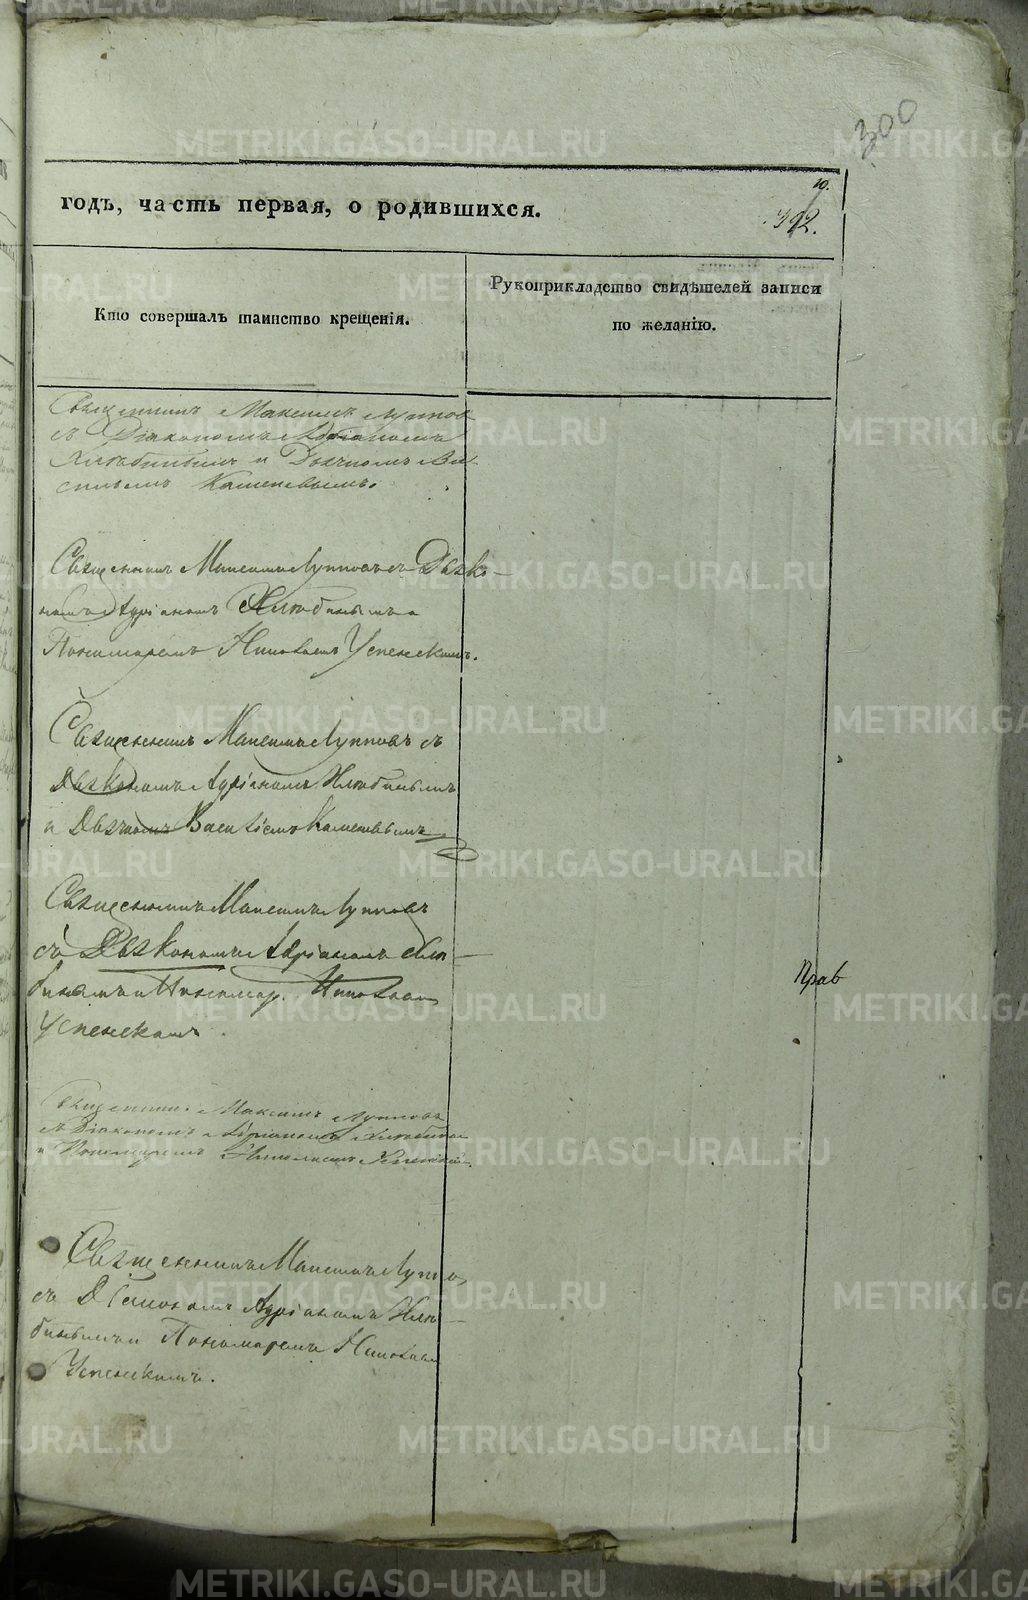 300
10.
годъ, часть первая, о родившихся.
392.
Кто совершалъ таинство крещенія.
Рукоприкладство свидѣтелей записи
по желанію.
Священникъ Максимъ Лупповъ
съ Діакономъ Адріаномъ
Хлюбинымъ и Дьячкомъ Ва-
сильемъ Каменевымъ.
Священникъ Максимъ Лупповъ съ Дьяко-
номъ Адріаномъ Хлюбинымъ и
Пономаремъ Николаемъ Успенскимъ.
Священникъ Максимъ Лупповъ съ
Дьякономъ Адріаномъ Хлюбинымъ
и Дьячкомъ Василіемъ Каменевымъ
Священникъ Максимъ Лупповъ
съ Дьякономъ Адріаномъ Хлю-
бинымъ и Пономар. Николаем
Успенскимъ.
Прав
Священникъ Максимъ Лупповъ
съ Діакономъ Адріаномъ
и Пономаремъ Николаемъ
Священникъ Максимъ Луппов
съ Діакономъ Адріаномъ Хлю-
бинымъ и Пономаремъ Николаем
Успенскимъ.
METRIKI.GASO-URAL.RU